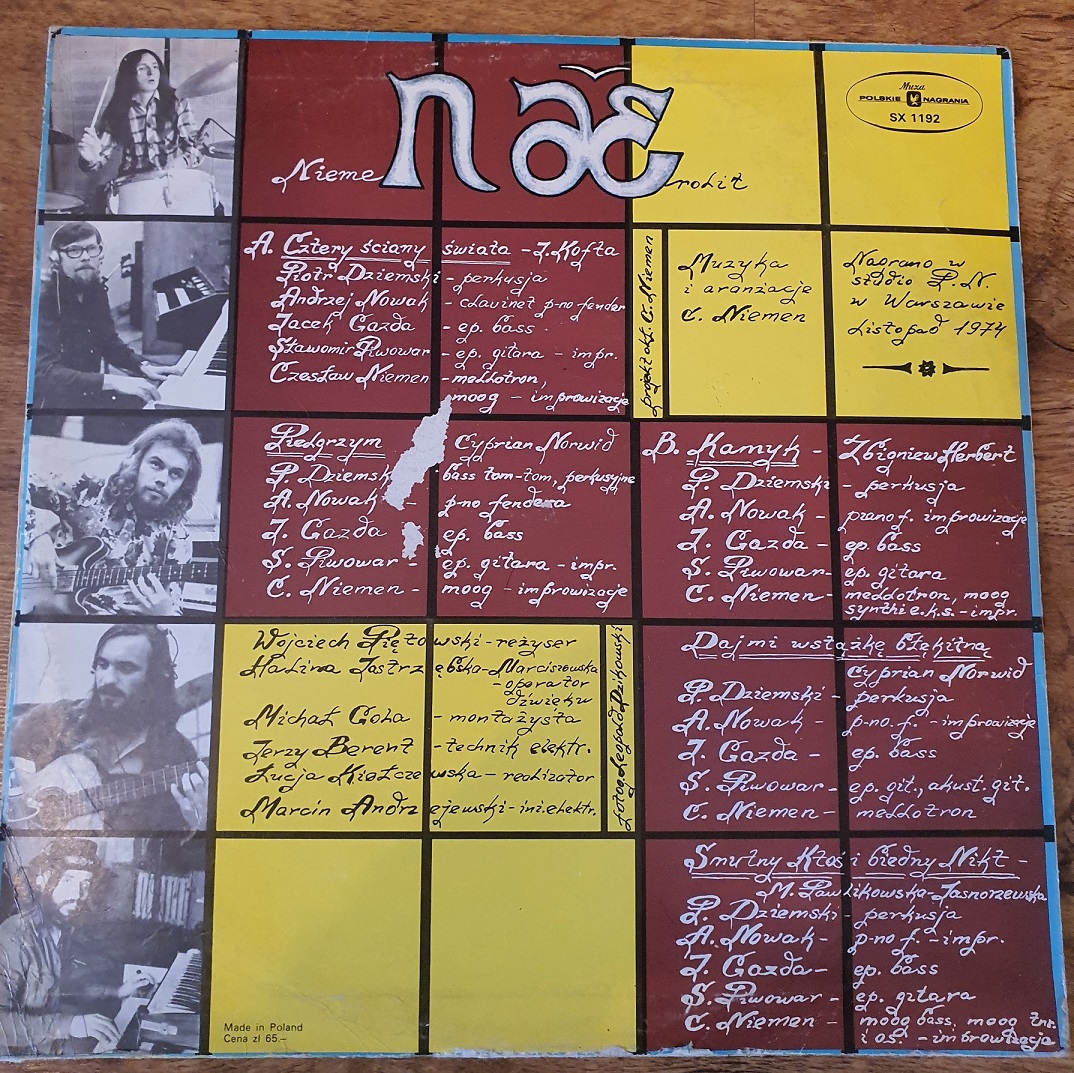 Nieme næ̆ rolit
Muza
POLSKIE NAGRANIA
SX 1192
A. Cztery ściany świata - J. Kofta
Piotr Dziemski - perkusja
Andrzej Nowak - clavinet p-no fender
Jacek Gazda - ep. bass
Sławomir Piwowar - ep. gitara - impr.
Czesław Niemen - mellotron,
moog - improwizacje
projekt okł. C. Niemen
Muzyka
i aranżacje
C. Niemen
Nagrano w
studio P.N.
w Warszawie
listopad 1974
Pielgrzym Cyprian Norwid
P. Dziemsk bass tom-tom, perkusyjne
A. Nowak - p-no fendera
J. Gazda ep. bass
S. Piwowar - ep. gitara - impr.
C. Niemen - moog - improwizacje
B. Kamyk - Zbigniew Herbert
P. Dziemski - perkusja
A. Nowak - piano f. improwizacje
J. Gazda - ep. bass
S. Piwowar - ep. gitara
C. Niemen - mellotron, moog
synthi e.k.s. - impr.
Wojciech Piętowski - reżyser
Halina Jastrzębska - Marciszewska
- operator
dźwięku
Michał Gola - montażysta
Jerzy Berent - technik elektr.
Łucja Kiełczewska - realizator
Marcin Andrzejewski - inż. elektr.
fotog. Leopold Dzikowski
Daj mi wstążkę błękitną
Cyprian Norwid
P. Dziemski - perkusja
A. Nowak - p-no. f. - improwizacje
J. Gazda - ep. bass
S. Piwowar - ep. git., akust. git.
C. Niemen - mellotron
Smutny Ktoś i biedny Nikt -
M. Pawlikowska - Jasnorzewska
P. Dziemski - perkusja
A. Nowak - p-no f. - impr.
J. Gazda - ep. bass
S. Piwowar - ep. gitara
C. Niemen - moog bass, moog
i oś. - improwizacja
Made in Poland
Cena zł 65.–